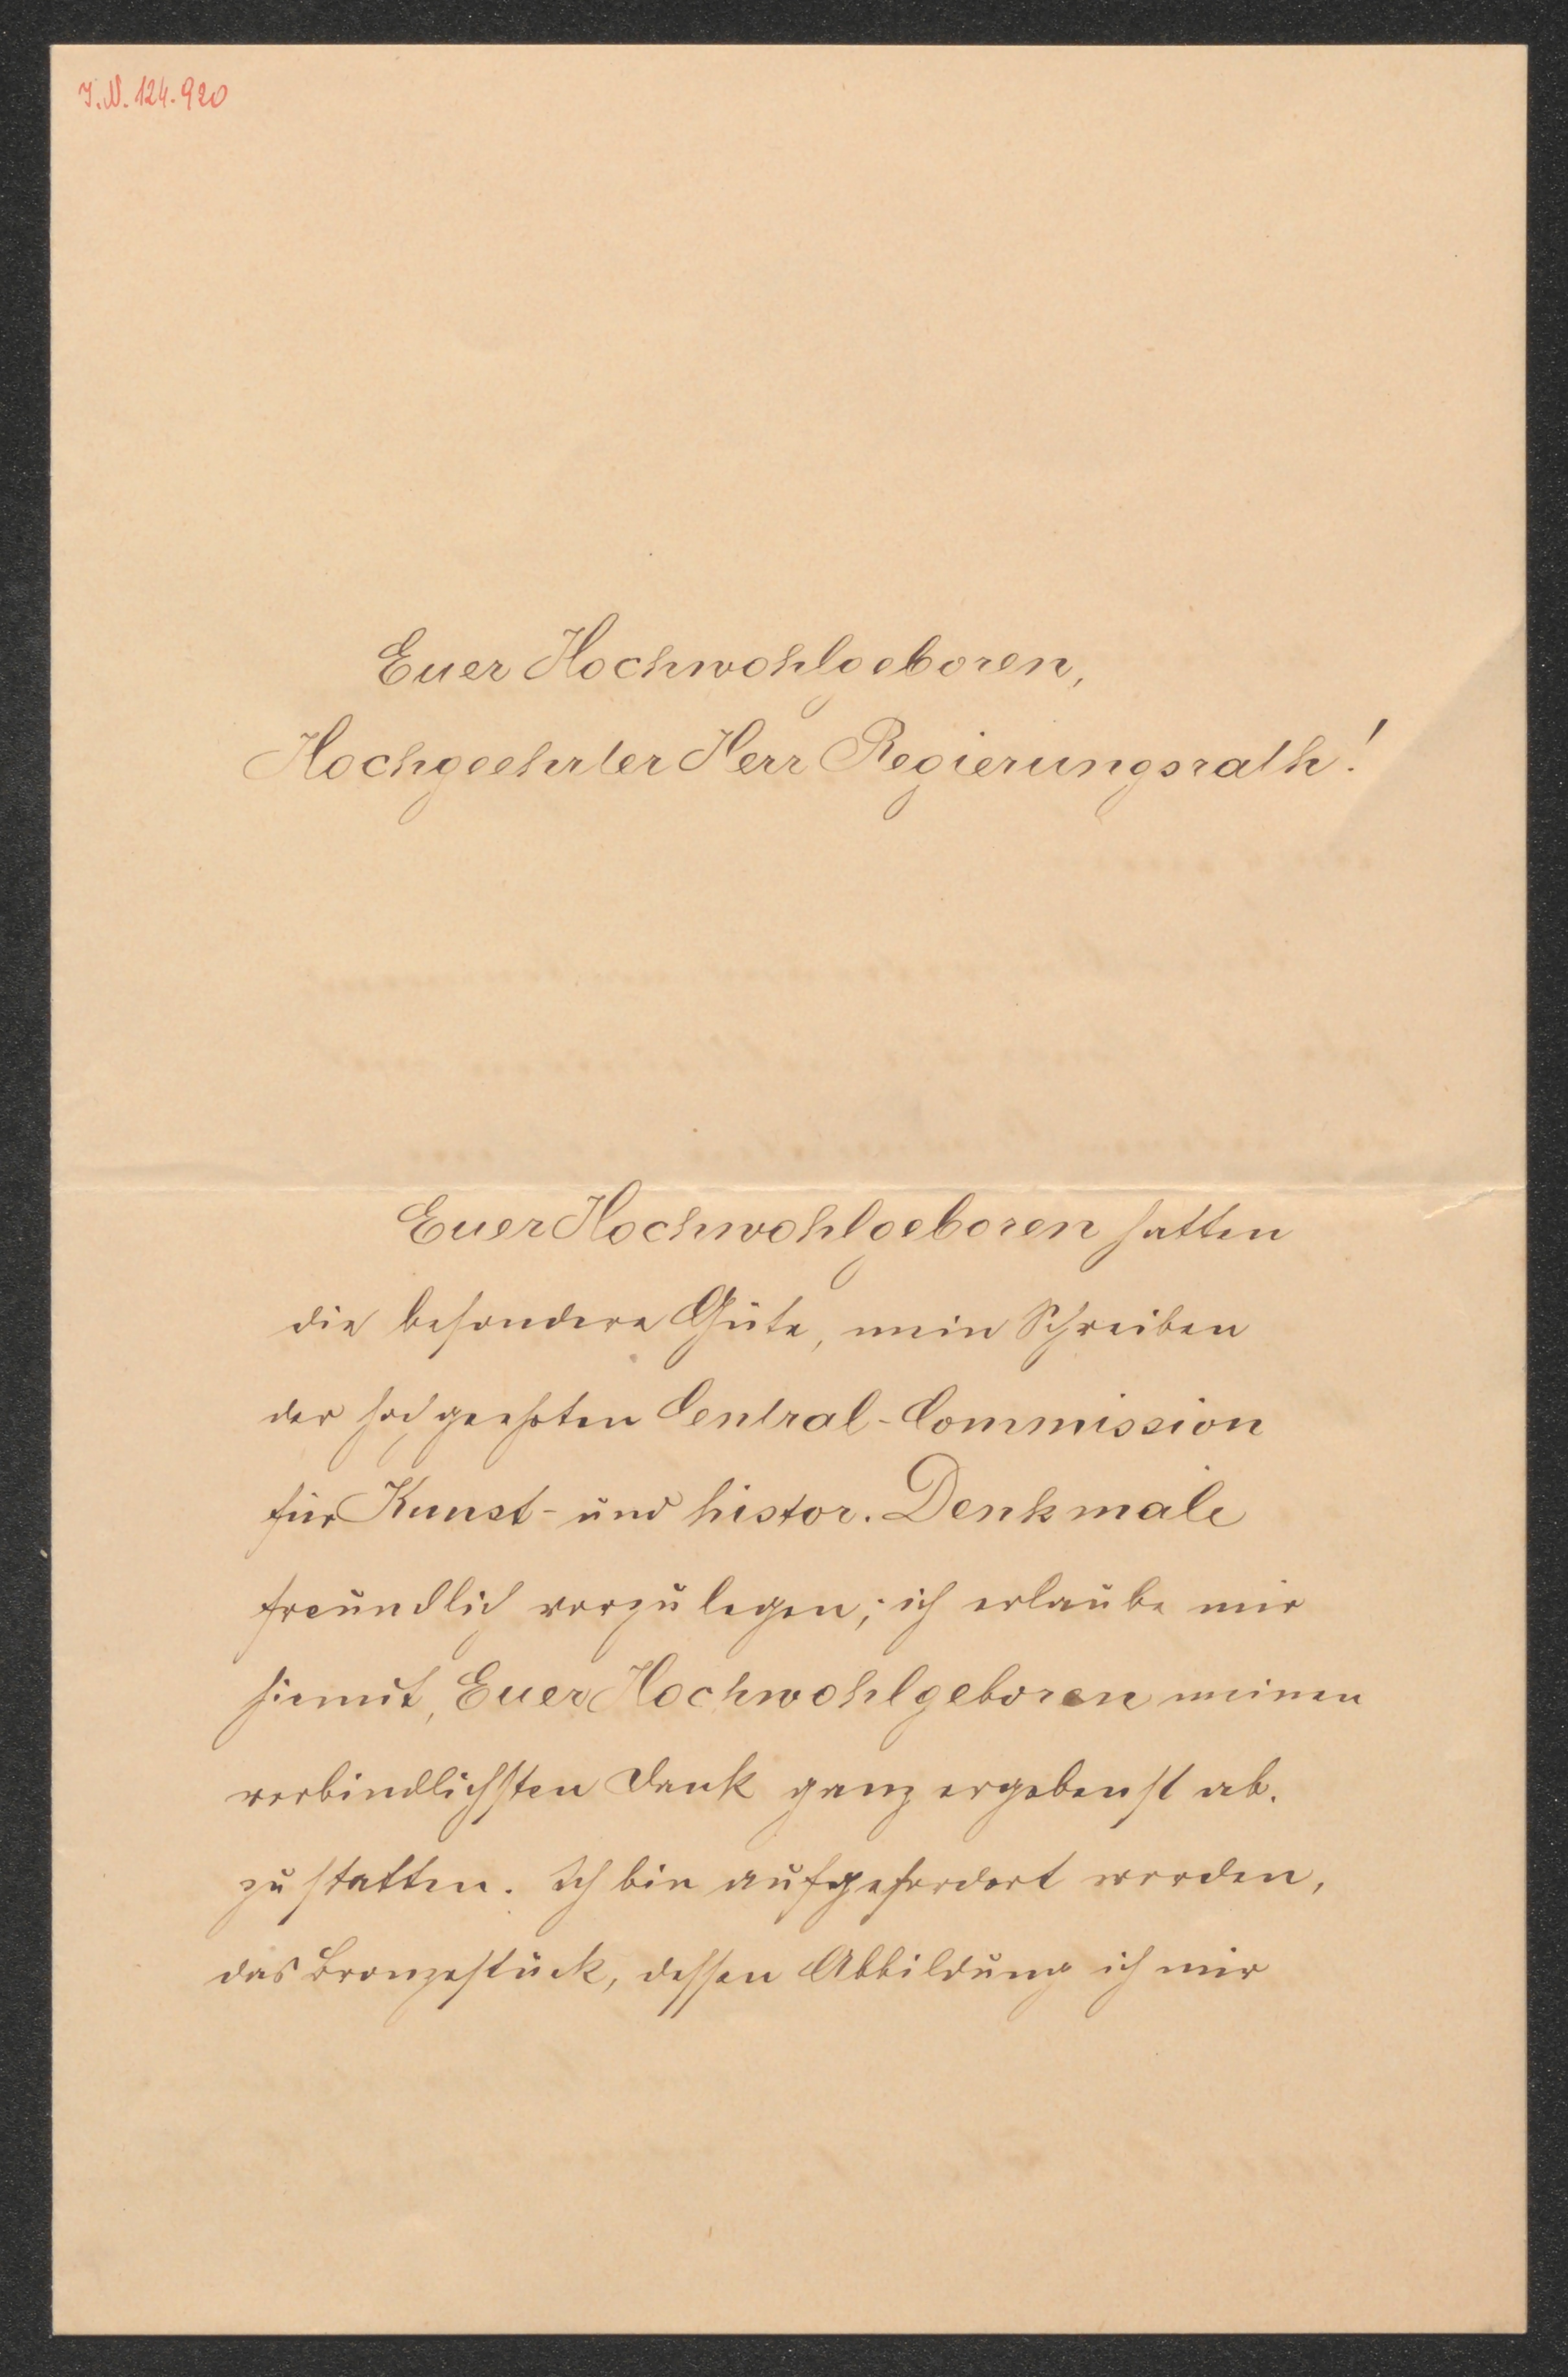 J.N. 124.920
Euer Hochwohlgeboren,
Hochgeehrter Herr Regierungsrath!
Euer Hochwohlgeboren hatten
die besondere Güte, mein Schreiben
der hochgeehrten Central-Commission
für Kunst- und histor. Denkmale
freundlich vorzulegen; ich erlaube mir
hiemit, Euer Hochwohlgeboren meinen
verbindlichsten Dank ganz ergebenst ab-
zustatten. Ich bin aufgefordert worden,
das Bronzestück, dessen Abbildung ich mir